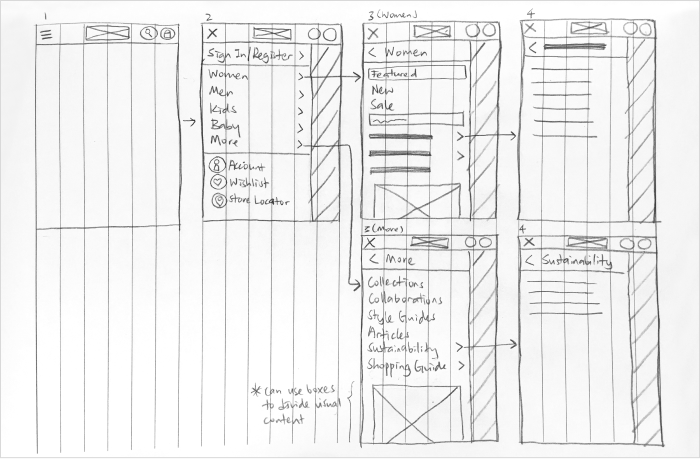 1
2
Sign In/Register >
Women >
Men >
Kids >
Baby >
More >
Account
Wishlist
Store Locator
3 (Women)
< Women
Featured
New
Sale
4
3 (More)
< More
Collections
Collaborations
Style Guides
Articles
Sustainability >
Shopping Guide >
* can use boxes
to divide visual
content
4
< Sustainability